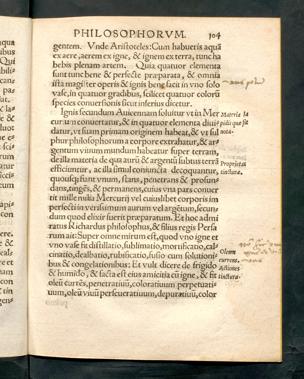 PHILOSOPHORVM. 104
gentem. Vnde Aristoteles: Cum habueris aquā
ex aere, aerem ex igne, & ignem ex terra, tunc ha
bebis plenam artem. Quia quatuor elementa
sunt tunc bene & perfecte præparata, & omnia
ista magister operis & ignis bene facit in vno solo
vase, in quatuor gradibus, scilicet quatuor colorū
species conuersionis sicut inferius dicetur.
Ignis secundum Auicennam soluitur vt in Mer
curium conuertatur, & in quatuor elementa diui
datur, vt suam primam originem habeat, & vt sul
phur philosophorum a corpore extrahatur, & ar-
gentum viuum mundum habeatur super terram,
de illa materia de qua aurū & argentū subtus terrā
efficiuntur, ac illa simul coniuncta decoquantur,
quousque fiunt vnum, stans, penetrans & profun
dans, tingēs, & permanens, cuius vna pars conuer
tit mille milia Mercurij vel cuiuslibet corporis im
perfecti in verissimum aurum vel argētum, secun
dum quod elixir fuerit præparatum. Et hoc admi
ratus Richardus philosophus, & filius regis Persa
rum ait: Super omne mirum est, quod vno igne et
vno vase fit distillatio, sublimatio, mortificatio, cal-
cinatio, dealbatio, rubificatio, fusio cum solutioni-
bus & congelationibus: Et vult dicere de frigido
& humido, & facta est eius amicitia cū igne, & fit
oleū currēs, penetratiuū, coloratiuum perpetuati-
uum, oleū viuū perseueratiuum, depuratiuū, color
Materia la
pidis qua sit
nota.
Proprietas
tincturæ.
Oleum
currens.
Actiones
tincturæ.